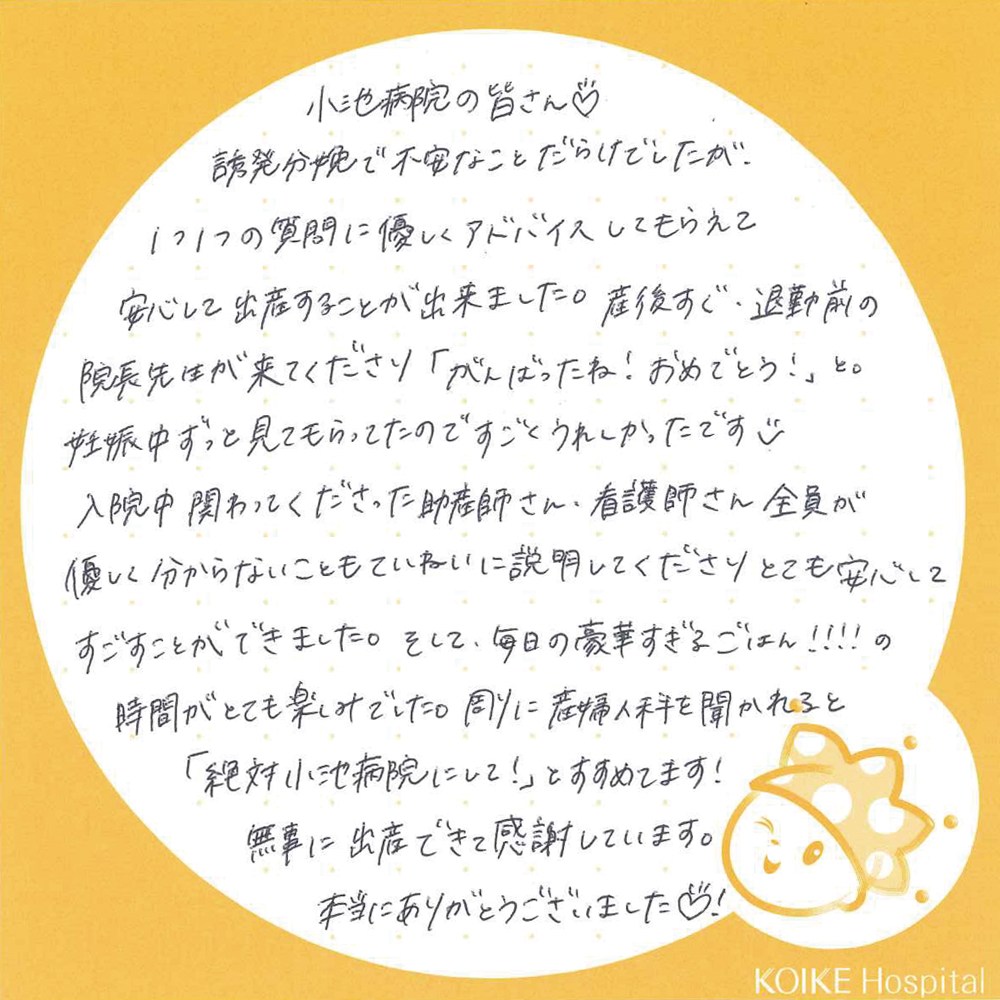 小池病院の皆さん♡
誘発分娩で不安なことだらけでしたが、
1つ1つの質問に優しくアドバイスしてもらえて
安心して出産することが出来ました。産後すぐ、退勤前の
院長先生が来てくださり「がんばったね!おめでとう!」と。
妊娠中ずっと見てもらってたのですごくうれしかったです
入院中関わってくださった助産師さん、看護師さん全員が
優しく分からないこともていねいに説明してくださりとても安心して
すごすことができました。そして、毎日の豪華すぎるごはん!!!!の
時間がとても楽しみでした。周りに産婦人科を聞かれると
「絶対小池病院にして!」とすすめてます!
無事に出産できて感謝しています。
本当にありがとうございました♡!
KOIKE Hospital